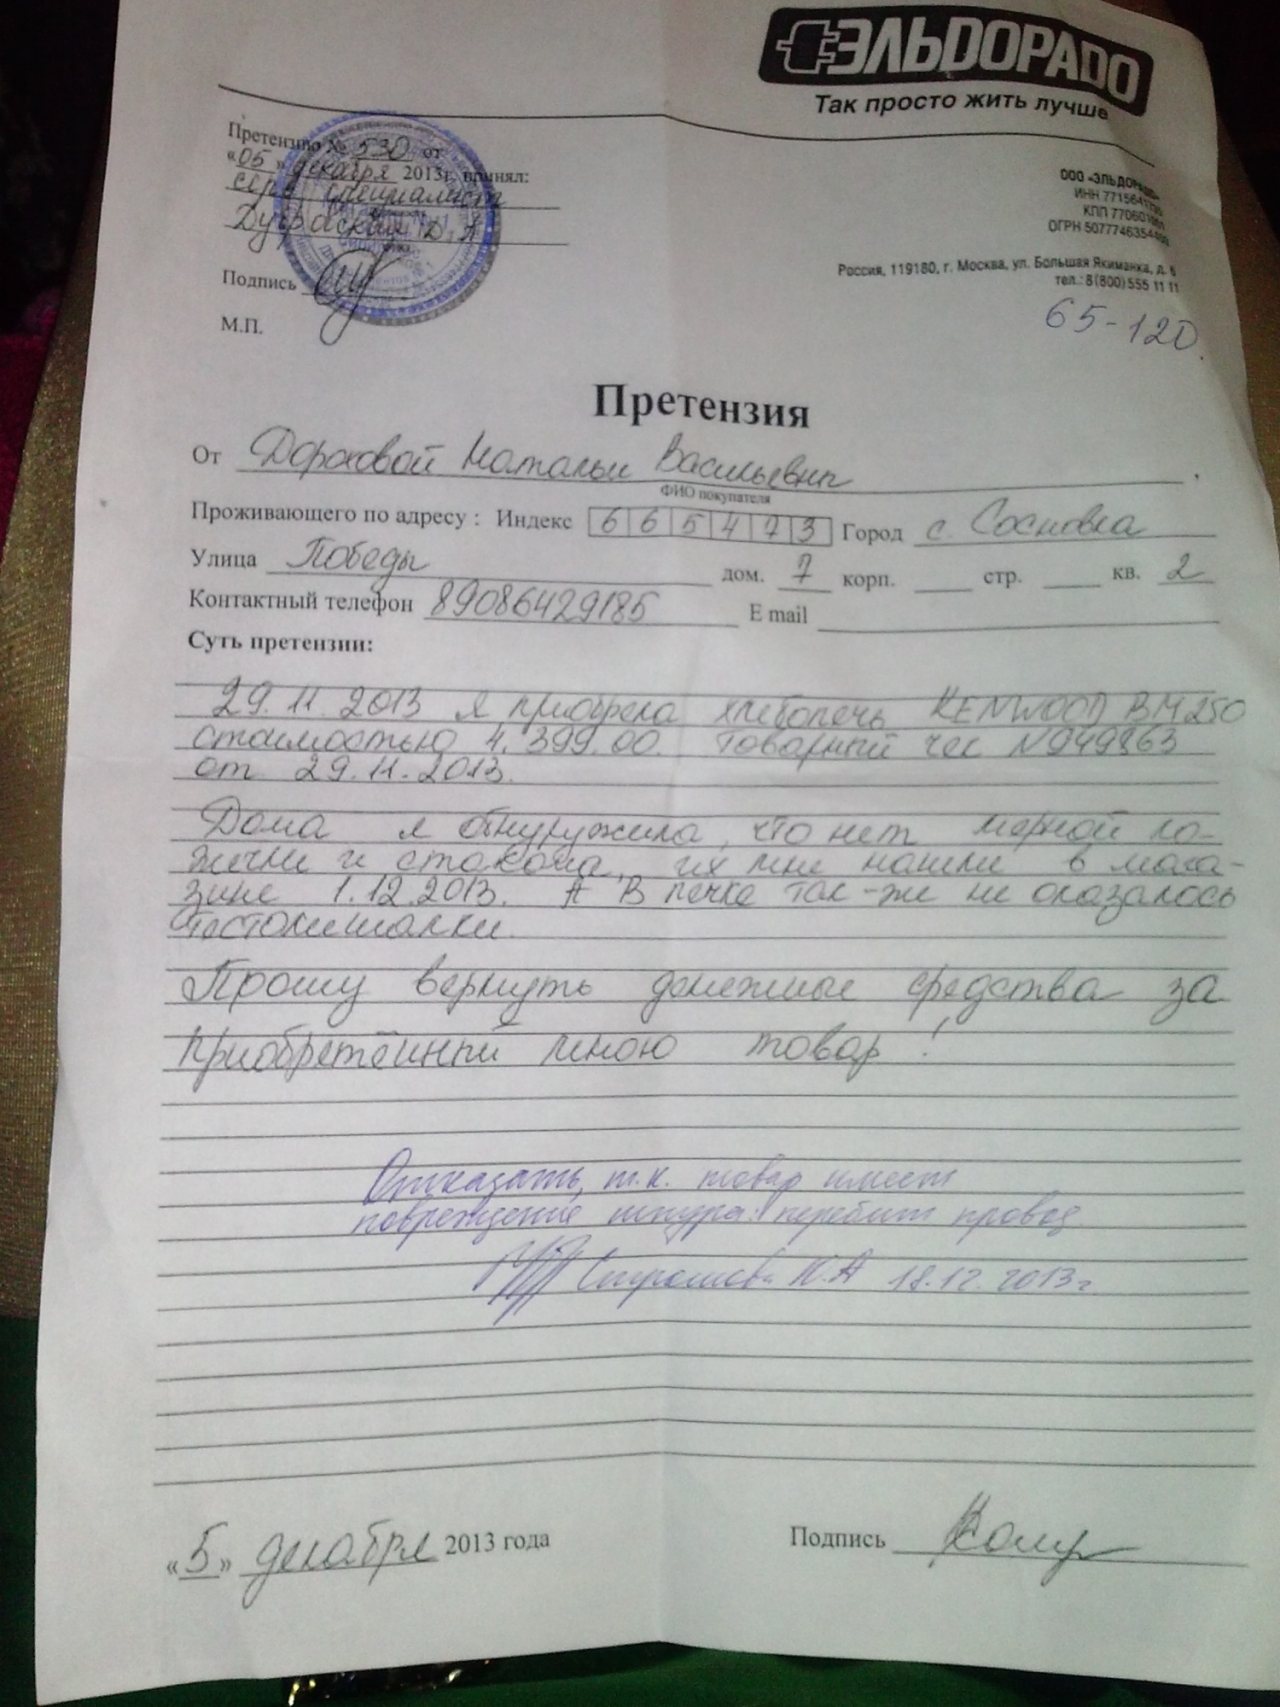 ЭЛЬDОРАDО
Так просто жить лучше
Претензию № 530 от
«05» декабря 2013г. принял:
серв. специалист
Д.А
Подпись
М.П.
ООО «ЭЛЬДОРАДО»
ИНН 7715641735
КПП 770601001
ОГРН 5077746354450
Россия, 119180, г. Москва, ул. Большая Якиманка, д. 6
тел.: 8(800) 555 11 11
65-120.
Претензия
От Дороховой Натальи Васильевны
ФИО покупателя
Проживающего по адресу : Индекс 665473 Город с. Сосновка
Улица Победы дом. 7 корп. стр. кв. 2
Контактный телефон 89086429185 E mail
Суть претензии:
29.11.2013 я приобрела хлебопечь KENWOOD BM250
стоимостью 4.399.00. Товарный чес N949863
от 29.11.2013.
Дома я обнуружила, что нет мерной ло-
жечки и стакана, их мне нашли в мага-
зине 1.12.2013. А в печке так-же не оказалось
тестомешалки.
Прошу вернуть денежные средства за
приобретённый мною товар!
Отказать, т.к. товар имеет
повреждение шнура: перебит провод
К.А 18.12.2013г.
«5» декабря 2013 года
Подпись